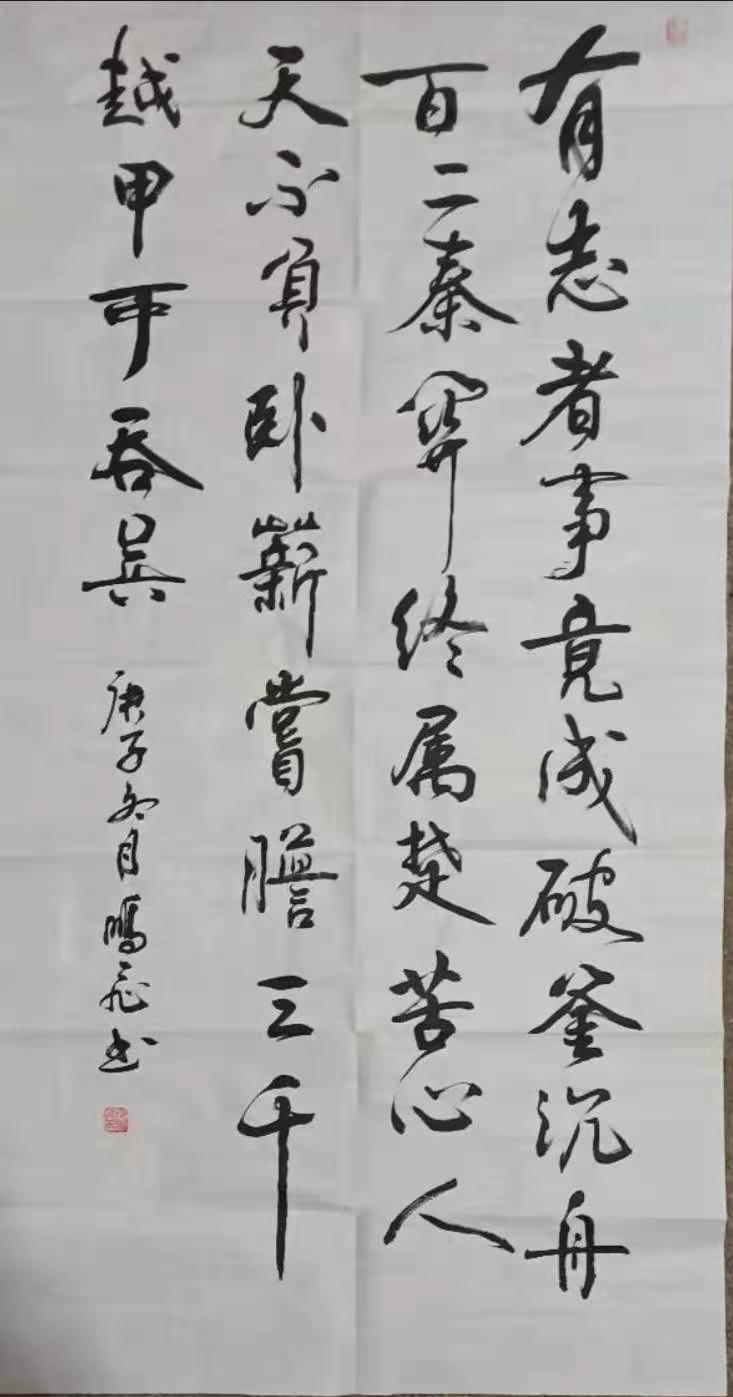 有志者事竟成破釜沉舟
百二秦关终属楚苦心人
天不负卧薪嘗膽三千
越甲可吞吴
庚子冬月鸣飛书